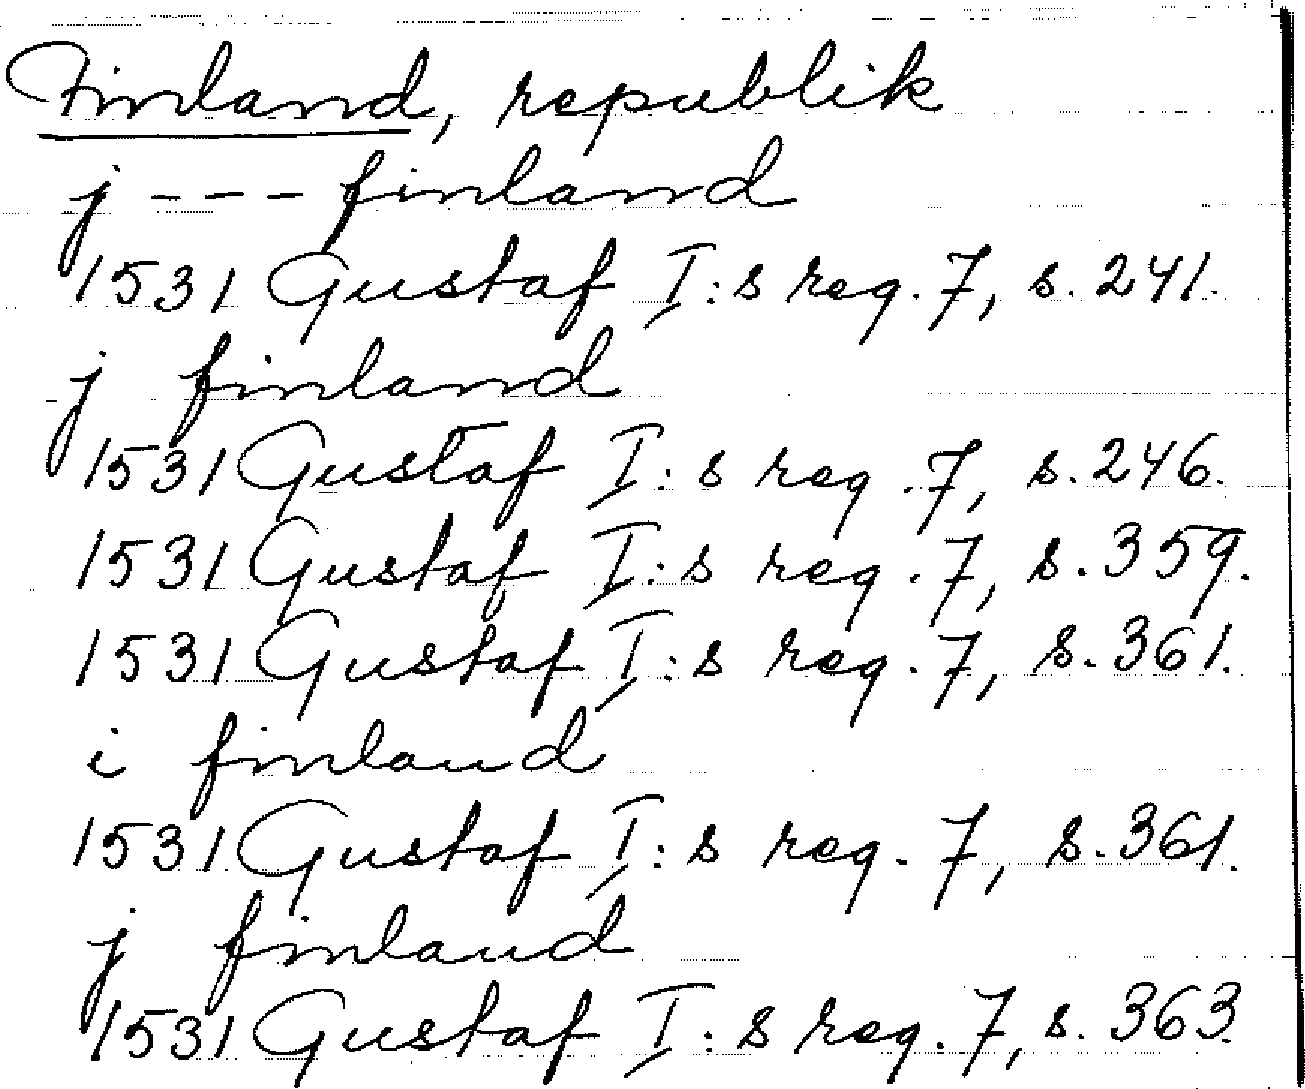 Finland, republik
j --- finland
1531 Gustaf I:s reg. 7, s. 241.
j finland
1531 Gustaf I:s reg. 7, s. 246.
1531 Gustaf I:s reg. 7, s. 359.
1531 Gustaf I:s reg. 7, s. 361.
i finland
1531 Gustaf I:s reg. 7, s. 361.
j finland
1531 Gustaf I:s reg. 7, s. 363.